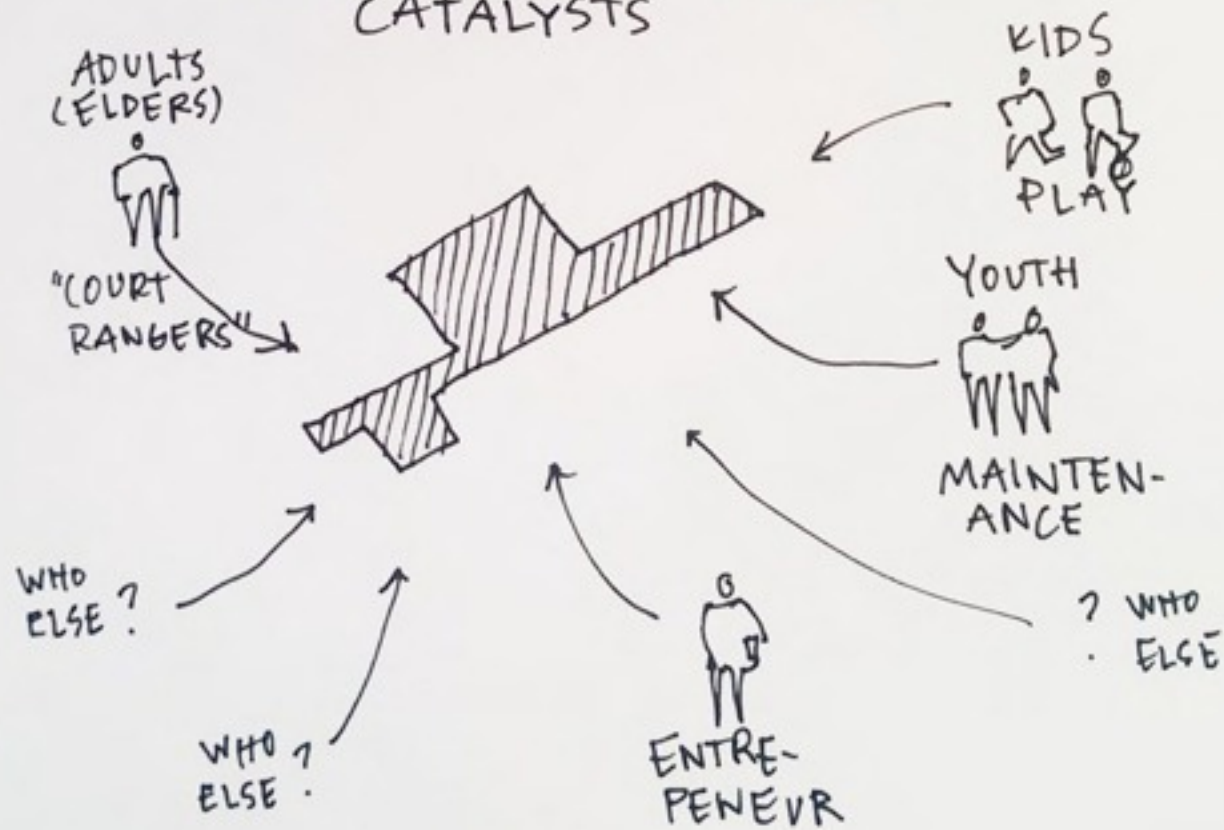 CATALYSTS
ADULTS
(ELDERS)
"COURT
RANGERS"
KIDS
PLAY
YOUTH
MAINTEN-
ANCE
? WHO
ELSE
ENTRE-
PENEUR
WHO
ELSE?
WHO
ELSE?